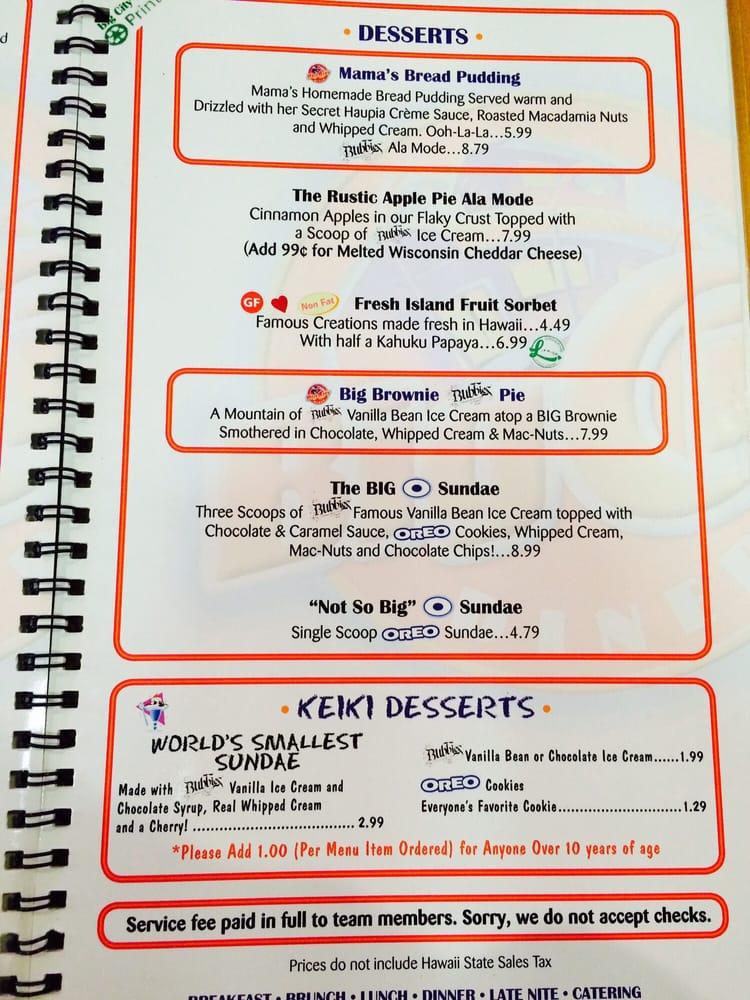 Big City
Print
d
• DESSERTS •
Mama's Bread Pudding
Mama's Homemade Bread Pudding Served warm and
Drizzled with her Secret Haupia Crème Sauce, Roasted Macadamia Nuts
and Whipped Cream. Ooh-La-La...5.99
Bubbies Ala Mode...8.79
The Rustic Apple Pie Ala Mode
Cinnamon Apples in our Flaky Crust Topped with
a Scoop of Bubbies Ice Cream...7.99
(Add 99¢ for Melted Wisconsin Cheddar Cheese)
GF Non Fat Fresh Island Fruit Sorbet
Famous Creations made fresh in Hawaii...4.49
With half a Kahuku Papaya...6.99
Big Brownie Bubbies Pie
A Mountain of Bubbies Vanilla Bean Ice Cream atop a BIG Brownie
Smothered in Chocolate, Whipped Cream & Mac-Nuts...7.99
The BIG O Sundae
Three Scoops of Bubbies Famous Vanilla Bean Ice Cream topped with
Chocolate & Caramel Sauce, OREO Cookies, Whipped Cream,
Mac-Nuts and Chocolate Chips!...8.99
"Not So Big" O Sundae
Single Scoop OREO Sundae...4.79
• KEIKI DESSERTS •
WORLD'S SMALLEST
SUNDAE
Made with Bubbies Vanilla Ice Cream and
Chocolate Syrup, Real Whipped Cream
and a Cherry! ..................................... 2.99
Bubbies Vanilla Bean or Chocolate Ice Cream......1.99
OREO Cookies
Everyone's Favorite Cookie..............................1.29
*Please Add 1.00 (Per Menu Item Ordered) for Anyone Over 10 years of age
Service fee paid in full to team members. Sorry, we do not accept checks.
Prices do not include Hawaii State Sales Tax
BREAKFAST • BRUNCH • LUNCH • DINNER • LATE NITE • CATERING